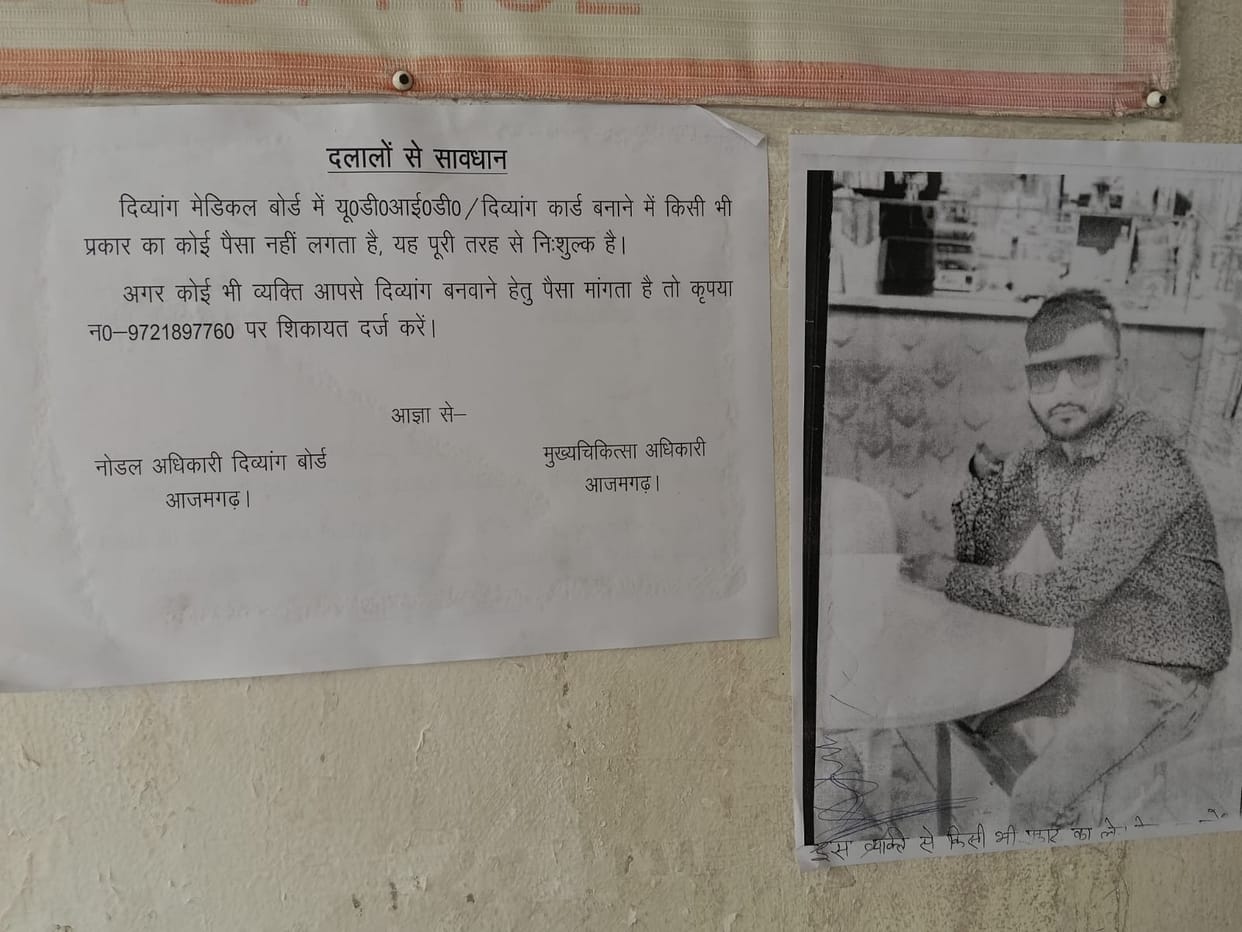 दलालों से सावधान
दिव्यांग मेडिकल बोर्ड में यू0डी0आई0डी0/दिव्यांग कार्ड बनाने में किसी भी
प्रकार का कोई पैसा नहीं लगता है, यह पूरी तरह से निःशुल्क है।
अगर कोई भी व्यक्ति आपसे दिव्यांग बनवाने हेतु पैसा मांगता है तो कृपया
न0–9721897760 पर शिकायत दर्ज करें।
आज्ञा से–
नोडल अधिकारी दिव्यांग बोर्ड
आजमगढ़।
मुख्यचिकित्सा अधिकारी
आजमगढ़।
इस व्यक्ति से किसी भी प्रकार का